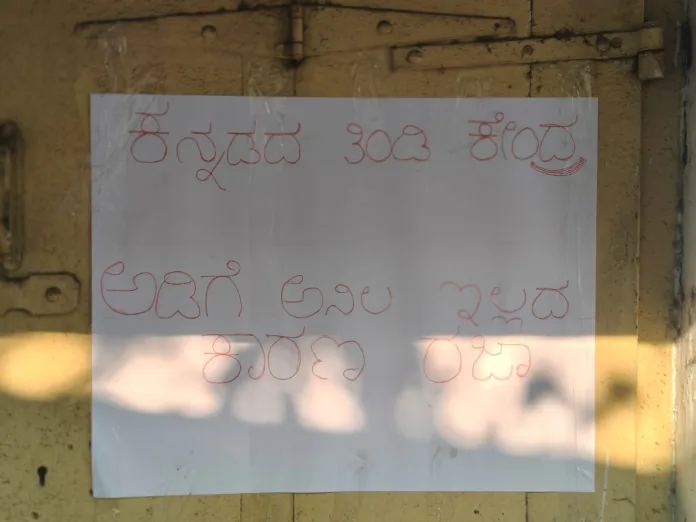 ಕನ್ನಡದ ತಿಂಡಿ ಕೇಂದ್ರ
ಅಡಿಗೆ ಅನಿಲ ಇಲ್ಲದ
ಕಾರಣ ರಜಾ